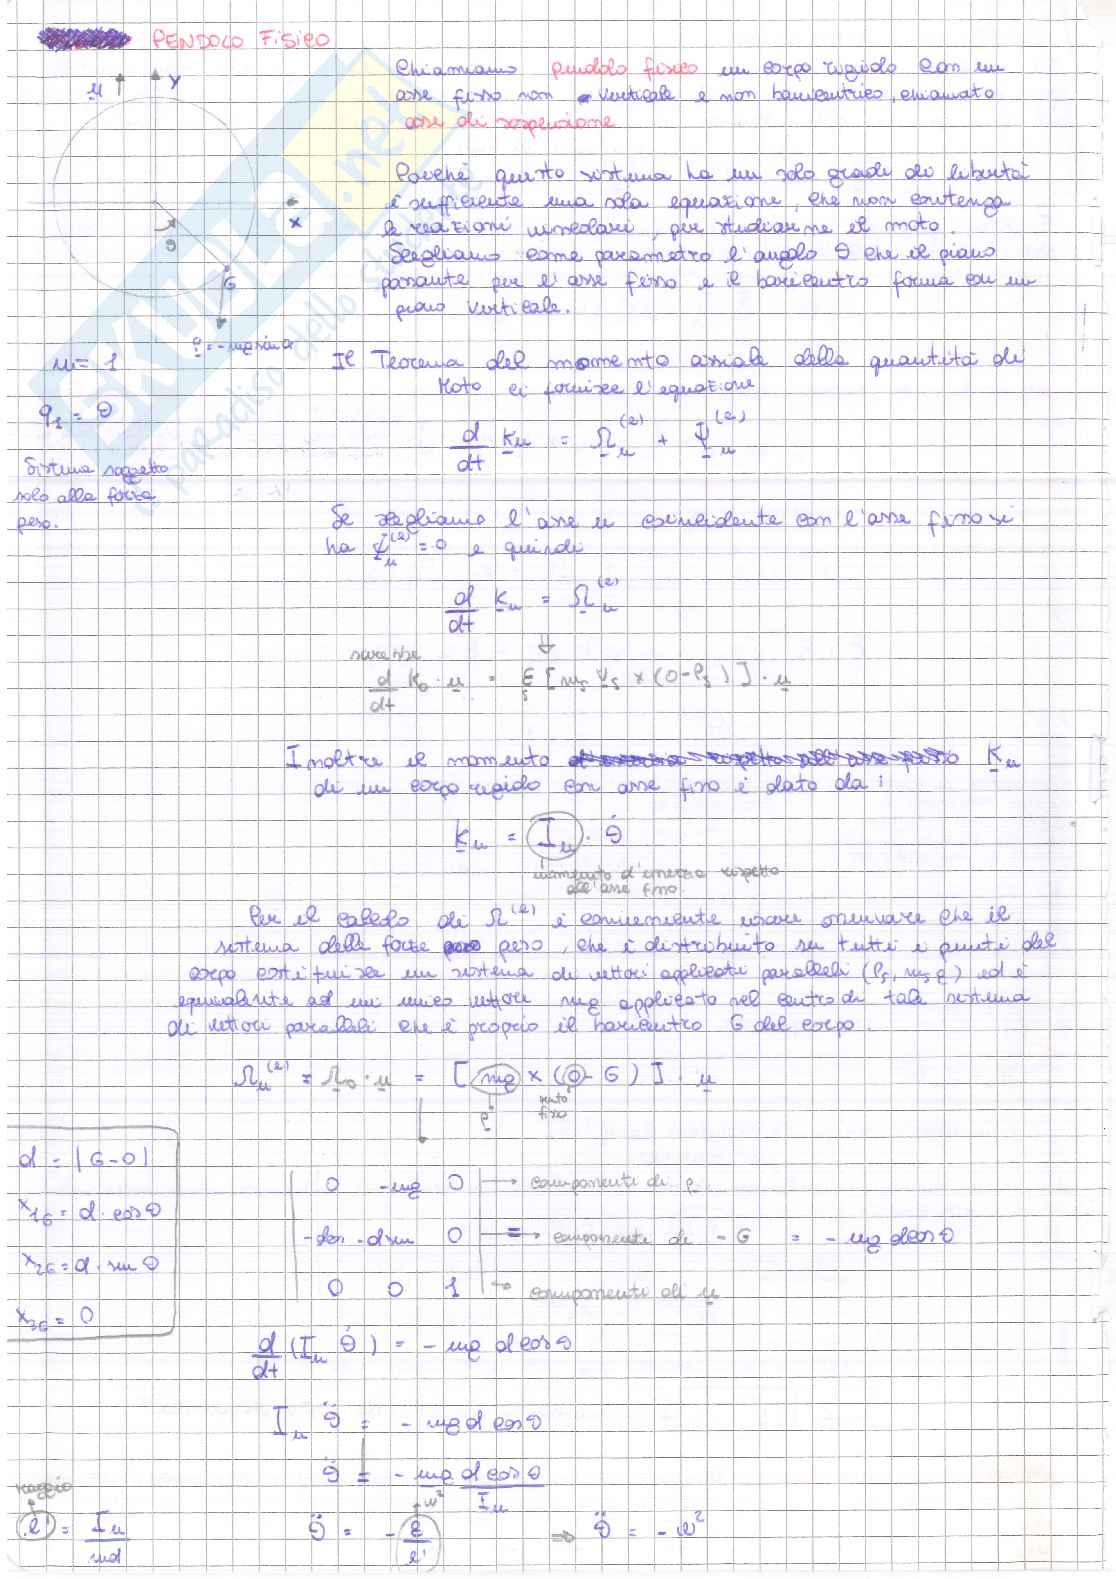 PENDOLO FISICO
Chiamiamo pendolo fisico un corpo rigido con un
asse fisso non verticale e non baricentrico, chiamato
asse di sospensione
u
Y
X
θ
G
p = -mg sin α
Poichè questo sistema ha un solo grado di libertà
è sufficiente una sola equazione, che non contenga
le reazioni vincolari, per studiarne il moto.
Scegliamo come parametro l'angolo θ che il piano
passante per l'asse fisso e il baricentro forma con un
piano verticale.
n = 1
q₁ = θ
Sistema soggetto
solo alla forza
peso.
Il Teorema del momento assiale della quantità di
Moto ci fornisce l'equazione
d/dt Ku = Ωu^(e) + Ψu^(e)
Se scegliamo l'asse u coincidente con l'asse fisso si
ha Ψu^(e) = 0 e quindi
d/dt Ku = Ωu^(e)
⇓
sarebbe
d/dt K₀ · u = Σs [ms vs × (O-Ps)] · u
Inoltre il momento Ku
di un corpo rigido con asse fisso è dato da:
Ku = Iu · θ̇
momento d'inerzia rispetto
all'asse fisso.
Per il calcolo di Ω^(e) è conveniente osservare che il
sistema delle forze peso, che è distribuito su tutti i punti del
corpo costituisce un sistema di vettori applicati paralleli (Ps, ms g) ed è
equivalente ad un unico vettore mg applicato nel centro di tale sistema
di vettori paralleli che è proprio il baricentro G del corpo.
Ωu^(e) = Ω₀ · u = [mg × (O - G)] · u
p
punto
fisso
d = |G-O|
x1G = d · cos θ
x2G = d · sin θ
x3G = 0
0 -mg 0 → componenti di p
-dcos -dsin 0 = → componenti di - G = - mg d cos θ
0 0 1 → componenti di u
d/dt (Iu θ̇) = - mg d cos θ
Iu θ̈ = - mg d cos θ
θ̈ = - mg d cos θ / Iu
raggio
l' = Iu / md
ω²
θ̈ = - g / l' ⇒ θ̈ = - ω²